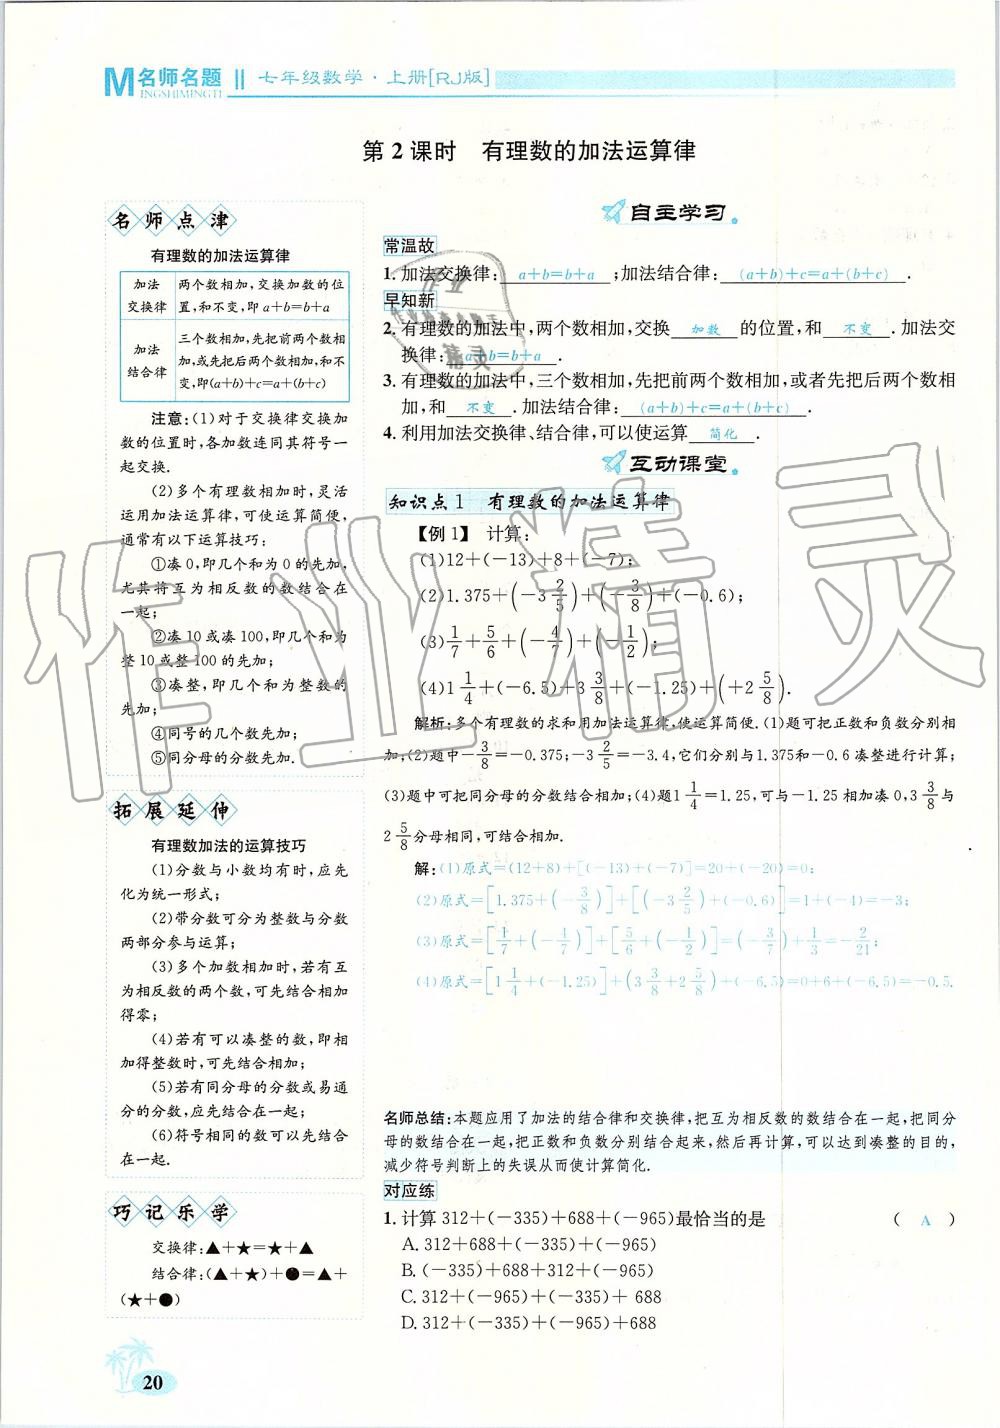 M名师名题 七年级数学·上册[RJ版]
INGSHIMINGTI
第2课时 有理数的加法运算律
名师点津
有理数的加法运算律
加法交换律 两个数相加,交换加数的位置,和不变,即a+b=b+a
加法结合律 三个数相加,先把前两个数相加,或先把后两个数相加,和不变,即(a+b)+c=a+(b+c)
注意:(1)对于交换律交换加
数的位置时,各加数连同其符号一
起交换.
(2)多个有理数相加时,灵活
运用加法运算律,可使运算简便,
通常有以下运算技巧:
①凑0,即几个和为0的先加,
尤其将互为相反数的数结合在
一起;
②凑10或凑100,即几个和为
整10或整100的先加;
③凑整,即几个和为整数的
先加;
④同号的几个数先加;
⑤同分母的分数先加.
拓展延伸
有理数加法的运算技巧
(1)分数与小数均有时,应先
化为统一形式;
(2)带分数可分为整数与分数
两部分参与运算;
(3)多个加数相加时,若有互
为相反数的两个数,可先结合相加
得零;
(4)若有可以凑整的数,即相
加得整数时,可先结合相加;
(5)若有同分母的分数或易通
分的分数,应先结合在一起;
(6)符号相同的数可以先结合
在一起.
巧记乐学
交换律:▲+★=★+▲
结合律:(▲+★)+●=▲+
(★+●)
20
自主学习
常温故
1.加法交换律: a+b=b+a ;加法结合律: (a+b)+c=a+(b+c) .
早知新
2.有理数的加法中,两个数相加,交换 加数 的位置,和 不变 .加法交
换律: a+b=b+a .
3.有理数的加法中,三个数相加,先把前两个数相加,或者先把后两个数相
加,和 不变 .加法结合律: (a+b)+c=a+(b+c) .
4.利用加法交换律、结合律,可以使运算 简化 .
互动课堂
知识点1 有理数的加法运算律
【例1】 计算:
(1)12+(-13)+8+(-7);
(2)1.375+(-3 2/5)+(-3/8)+(-0.6);
(3)1/7+5/6+(-4/7)+(-1/2);
(4)1 1/4+(-6.5)+3 3/8+(-1.25)+(+2 5/8).
解析:多个有理数的求和用加法运算律,使运算简便.(1)题可把正数和负数分别相
加;(2)题中-3/8=-0.375;-3 2/5=-3.4,它们分别与1.375和-0.6凑整进行计算;
(3)题中可把同分母的分数结合相加;(4)题1 1/4=1.25,可与-1.25相加凑0,3 3/8与
2 5/8分母相同,可结合相加.
解:(1)原式=(12+8)+[(-13)+(-7)]=20+(-20)=0;
(2)原式=[1.375+(-3/8)]+[(-3 2/5)+(-0.6)]=1+(-4)=-3;
(3)原式=[1/7+(-4/7)]+[5/6+(-1/2)]=(-3/7)+1/3=-2/21;
(4)原式=[1 1/4+(-1.25)]+(3 3/8+2 5/8)+(-6.5)=0+6+(-6.5)=-0.5.
名师总结:本题应用了加法的结合律和交换律,把互为相反数的数结合在一起,把同分
母的数结合在一起,把正数和负数分别结合起来,然后再计算,可以达到凑整的目的,
减少符号判断上的失误从而使计算简化.
对应练
1.计算312+(-335)+688+(-965)最恰当的是 ( A )
A.312+688+(-335)+(-965)
B.(-335)+688+312+(-965)
C.312+(-965)+(-335)+ 688
D.312+(-335)+(-965)+688
作业精灵